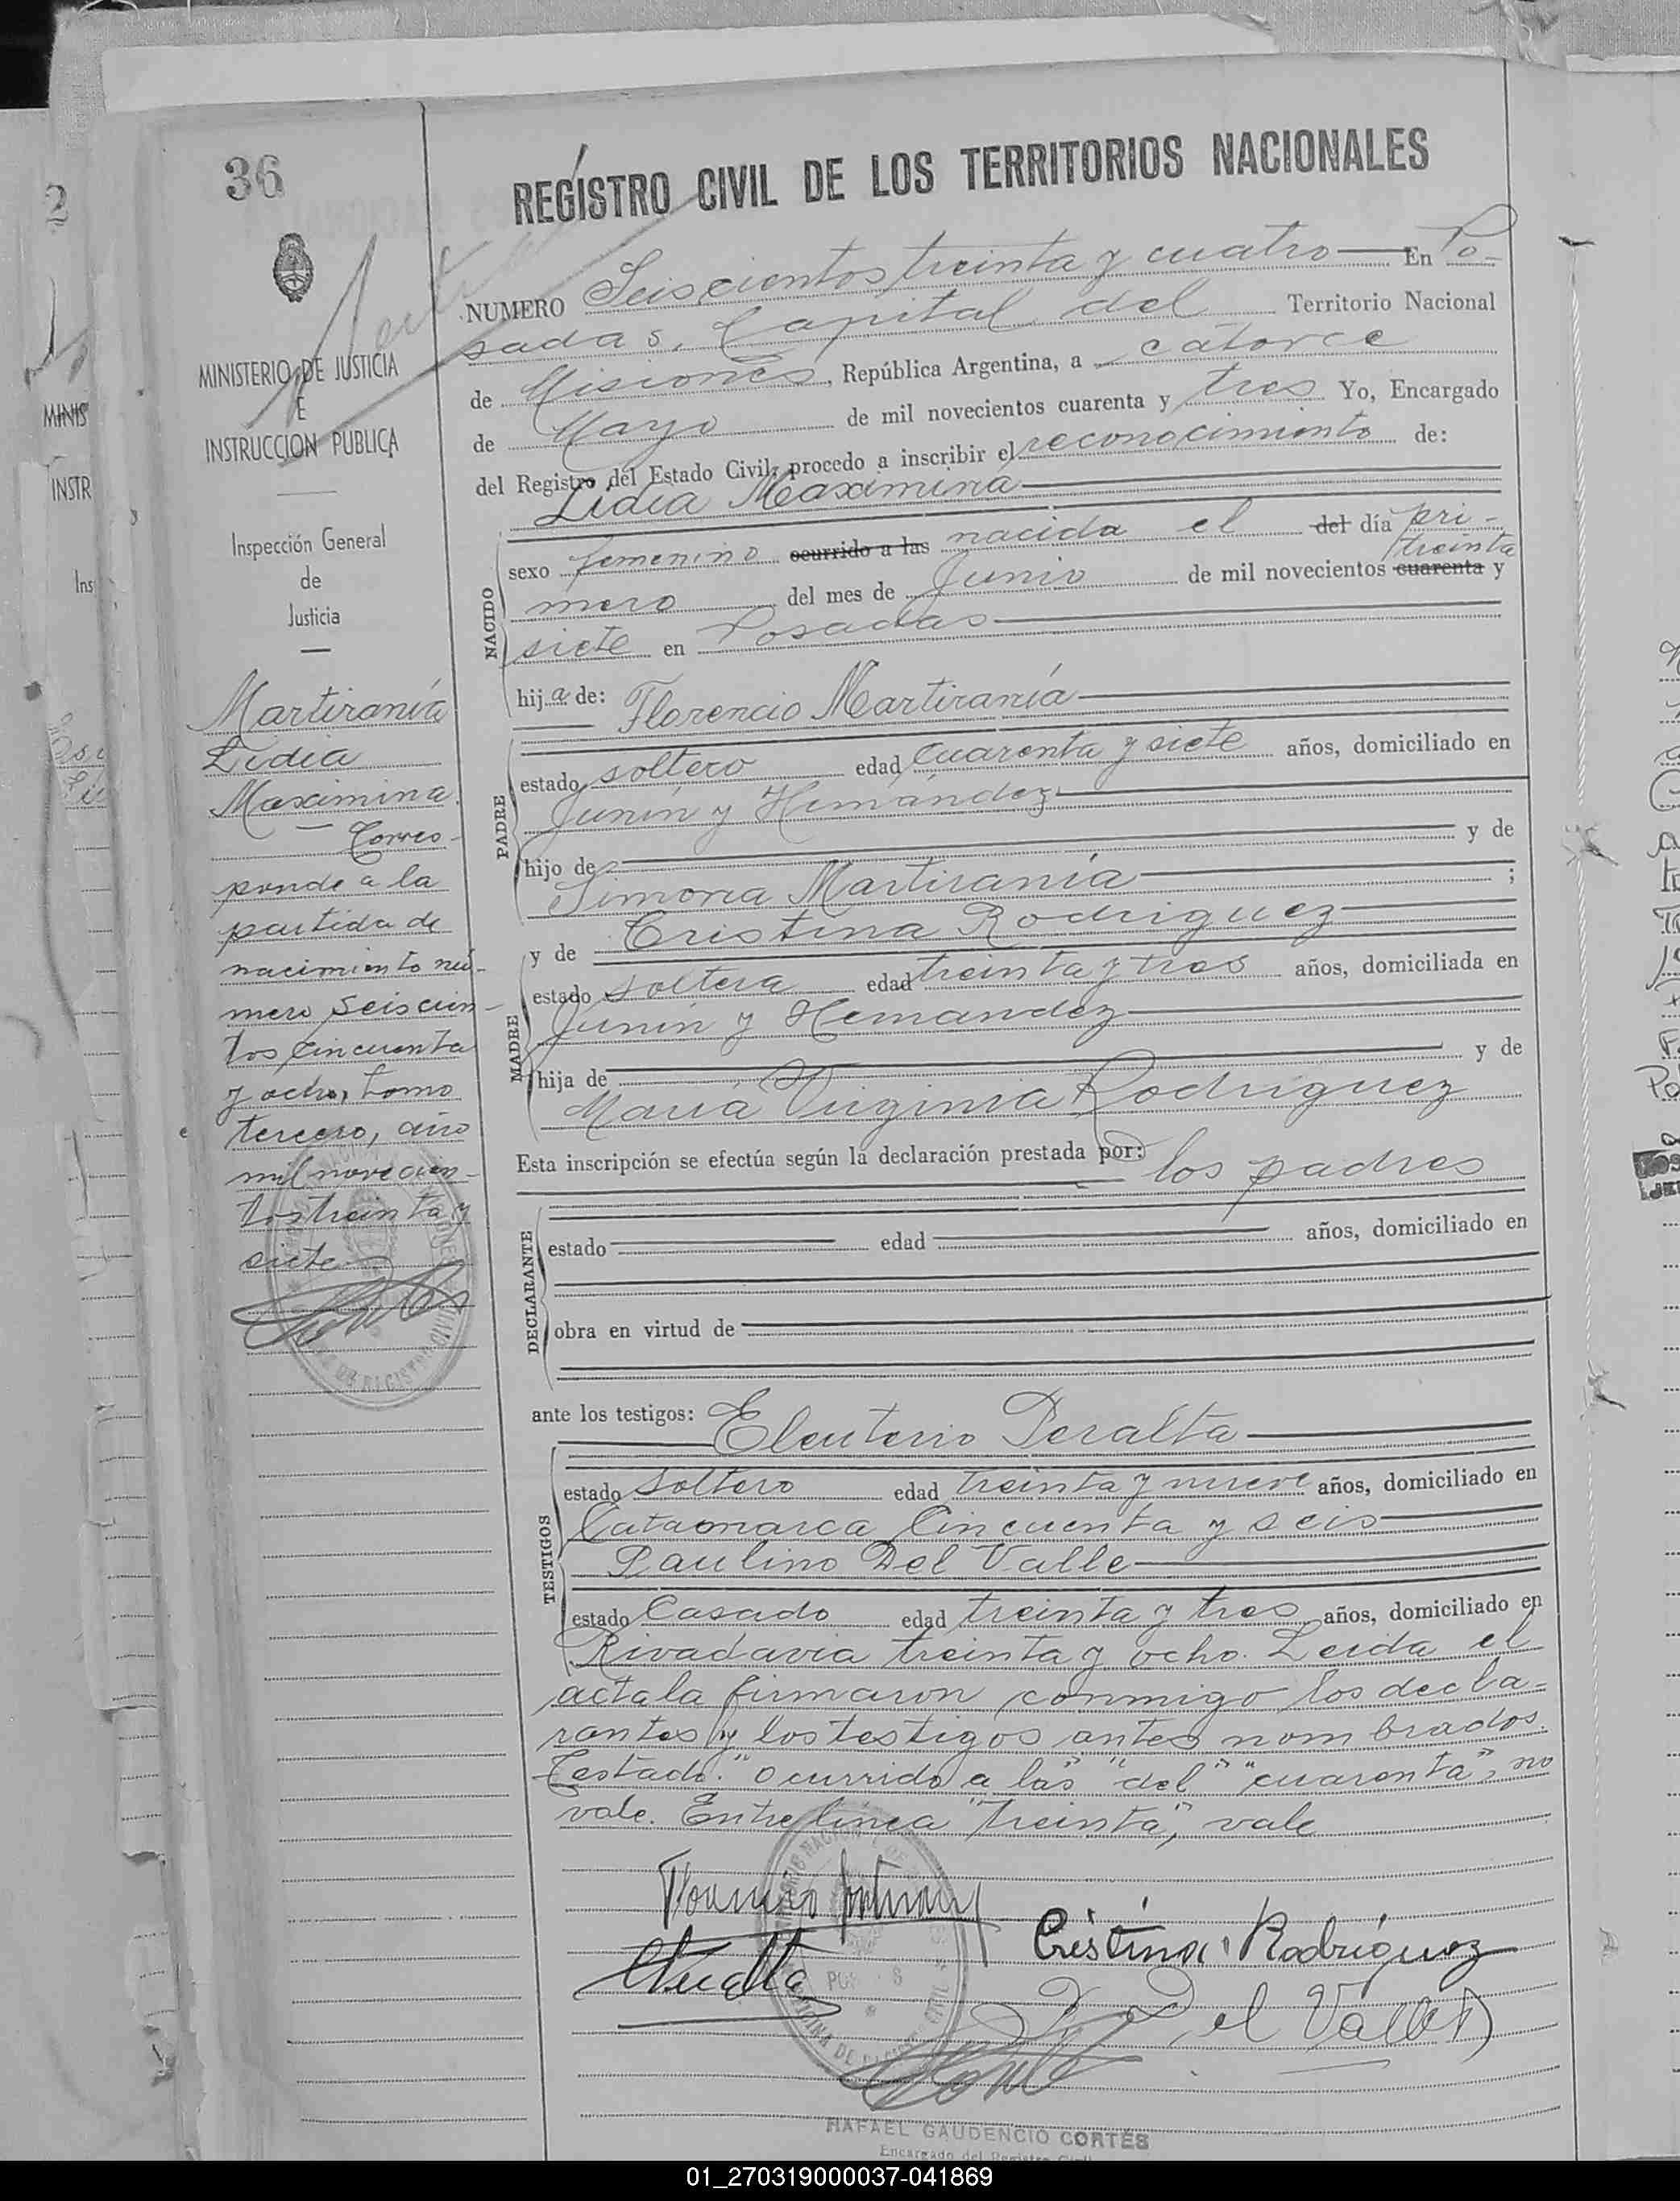 36
REGISTRO CIVIL DE LOS TERRITORIOS NACIONALES
MINISTERIO DE JUSTICIA
E
INSTRUCCION PUBLICA
Inspección General
de
Justicia
Martiranía
Lidia
Maximina
Corres-
ponde a la
partida de
nacimiento nú-
mero seiscien-
tos cincuenta
y ocho, tomo
tercero, año
mil novecien-
tos treinta y
siete
NUMERO Seiscientos treinta y cuatro En Po-
sadas, Capital del Territorio Nacional
de Misiones, República Argentina, a catorce
de Mayo de mil novecientos cuarenta y tres Yo, Encargado
del Registro del Estado Civil, procedo a inscribir el reconocimiento de:
Lidia Maximina
NACIDO
sexo femenino ocurrido a las nacida el del día pri-
treinta
mero del mes de Junio de mil novecientos cuarenta y
siete en Posadas
hija de: Florencio Martiranía
PADRE
estado soltero edad cuarenta y siete años, domiciliado en
Junín y Hernandez
hijo de y de
Simona Martiranía ;
y de Cristina Rodriguez
MADRE
estado soltera edad treinta y tres años, domiciliada en
Junín y Hernandez
hija de y de
María Virginia Rodriguez
Esta inscripción se efectúa según la declaración prestada por: los padres
DECLARANTE
estado edad años, domiciliado en
obra en virtud de
ante los testigos: Eleuterio Peralta
TESTIGOS
estado soltero edad treinta y nueve años, domiciliado en
Catamarca Cincuenta y seis
Paulino Del Valle
estado Casado edad treinta y tres años, domiciliado en
Rivadavia treinta y ocho. Leida el
acta la firmaron conmigo los decla-
rantes y los testigos antes nombrados.
Testado: "ocurrido a las" "del" "cuarenta", no
vale. Entre línea "treinta", vale
Cristina Rodríguez
Del Valle
RAFAEL GAUDENCIO CORTÉS
Encargado del Registro Civil
01_270319000037-041869